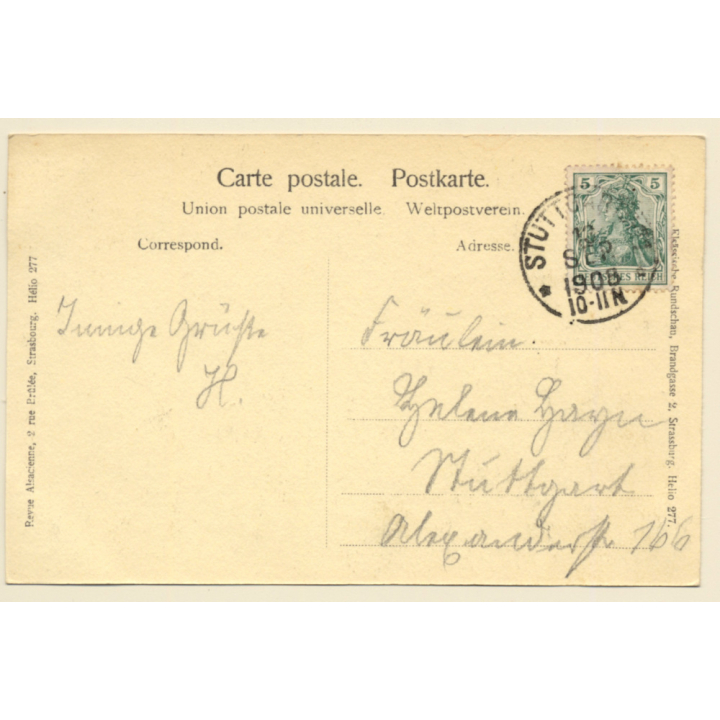 Carte postale. Postkarte.
Union postale universelle. Weltpostverein.
Correspond.
Adresse.
5 5
SEP
1908
10-11N
Innige Grüße
H.
Fräulein.
Helene Hayn
Stuttgart
Alexanderstr 166
Revue Alsacienne, 2 rue Brûlée, Strasbourg. Hélio 277
Elsässische Rundschau, Brandgasse 2, Strassburg. Helio 277.